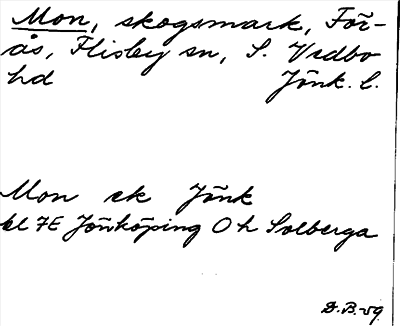 Mon, skogsmark, För-
ås, Flisby sn, S. Vedbo
hd Jönk. l.
Mon ek Jönk
bl 7E Jönköping O h Solberga
D.B.-59